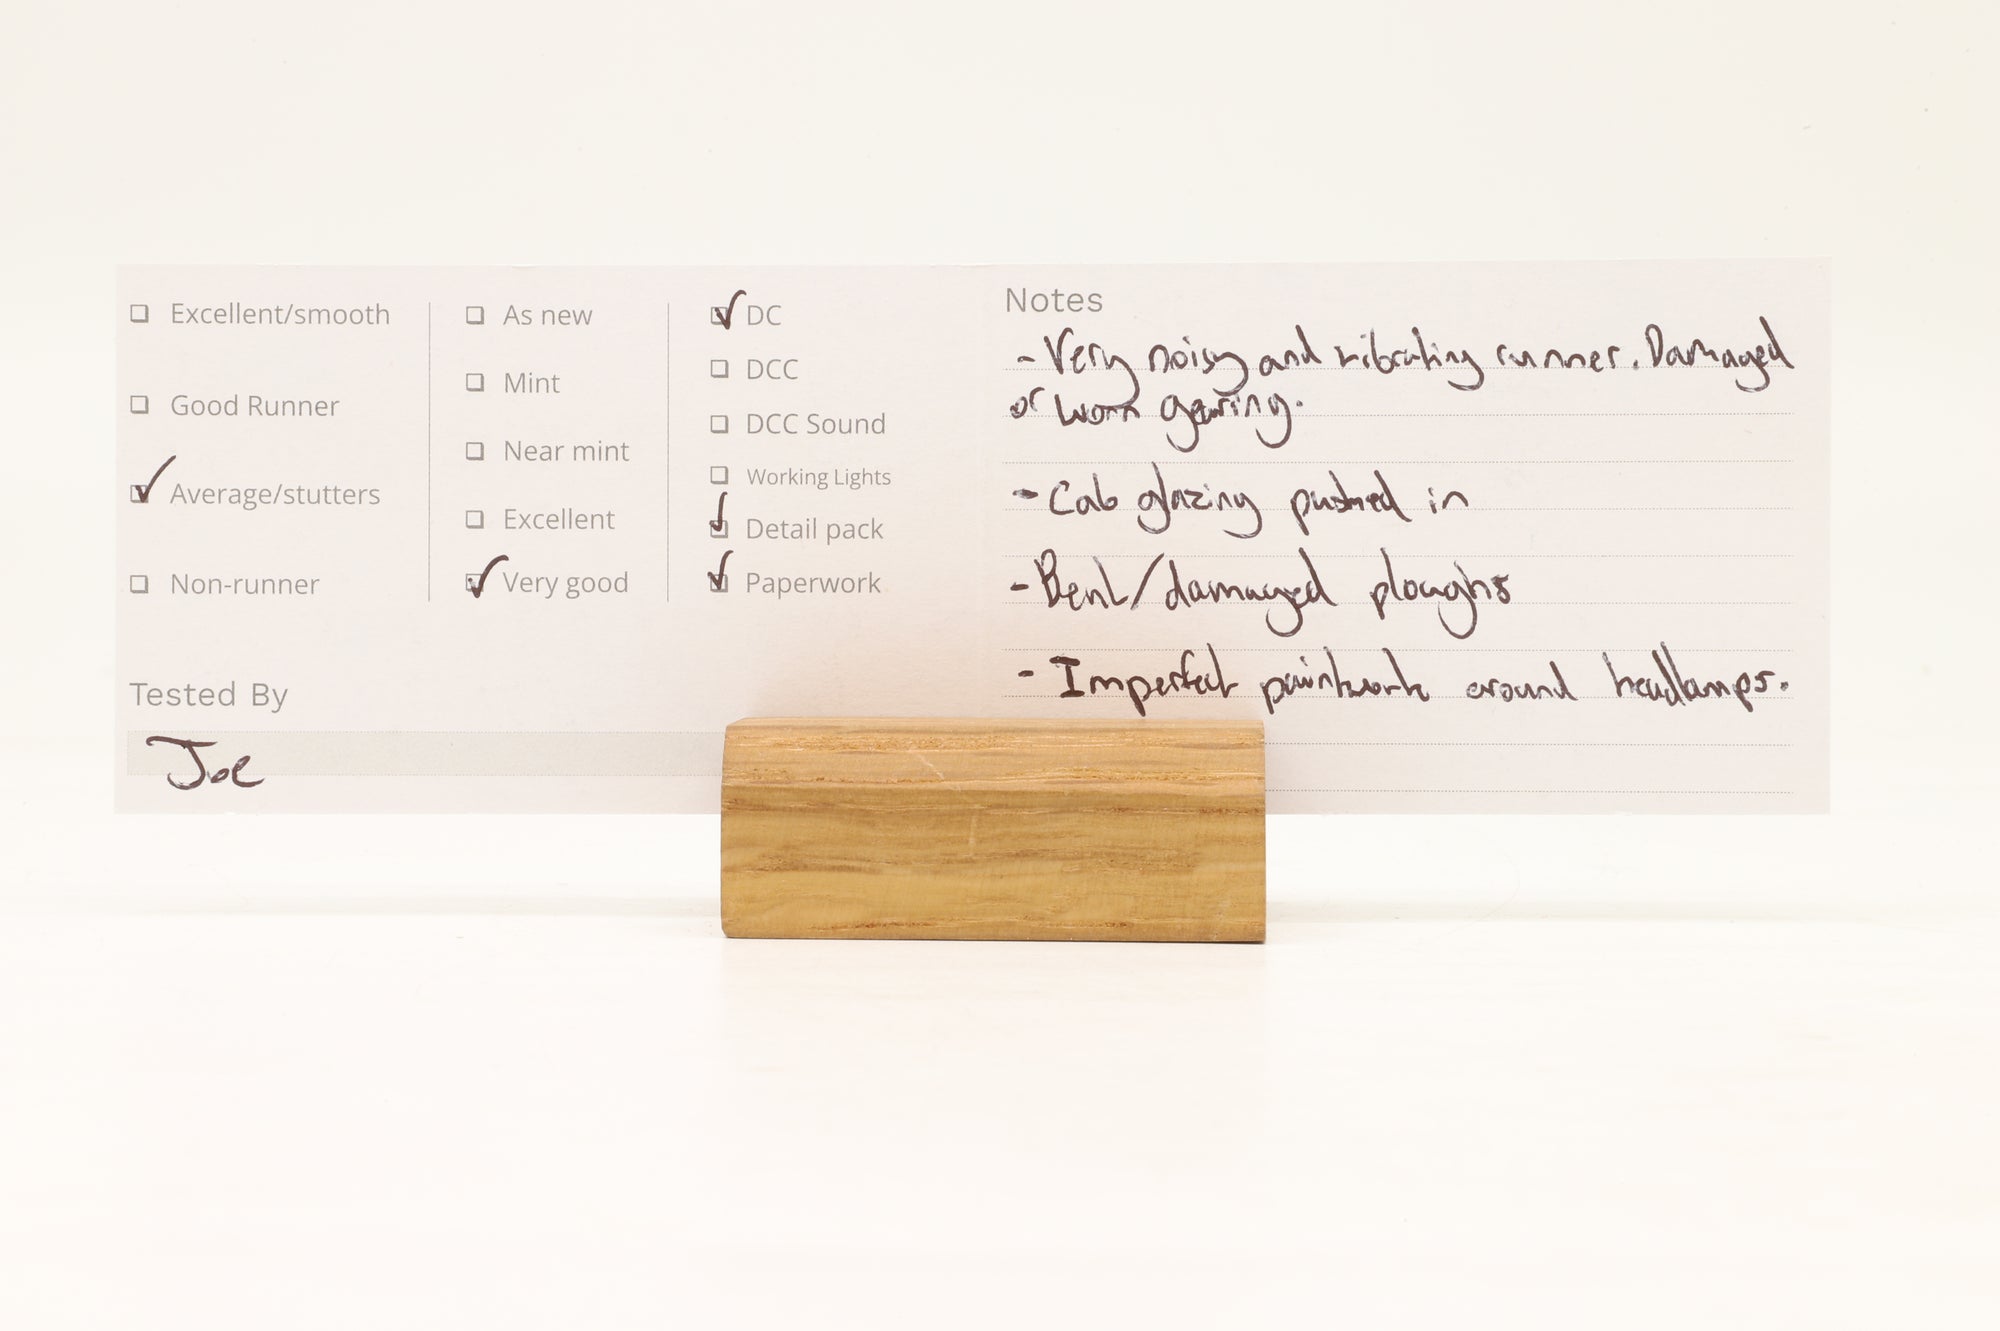 Excellent/smooth
Good Runner
Average/stutters
Non-runner
As new
Mint
Near mint
Excellent
Very good
DC
DCC
DCC Sound
Working Lights
Detail pack
Paperwork
Tested By
Joe
Notes
- Very noisy and vibrating runner. Damaged
or worn gearing.
- Cab glazing pushed in
- Bent/damaged ploughs
- Imperfect paintwork around headlamps.